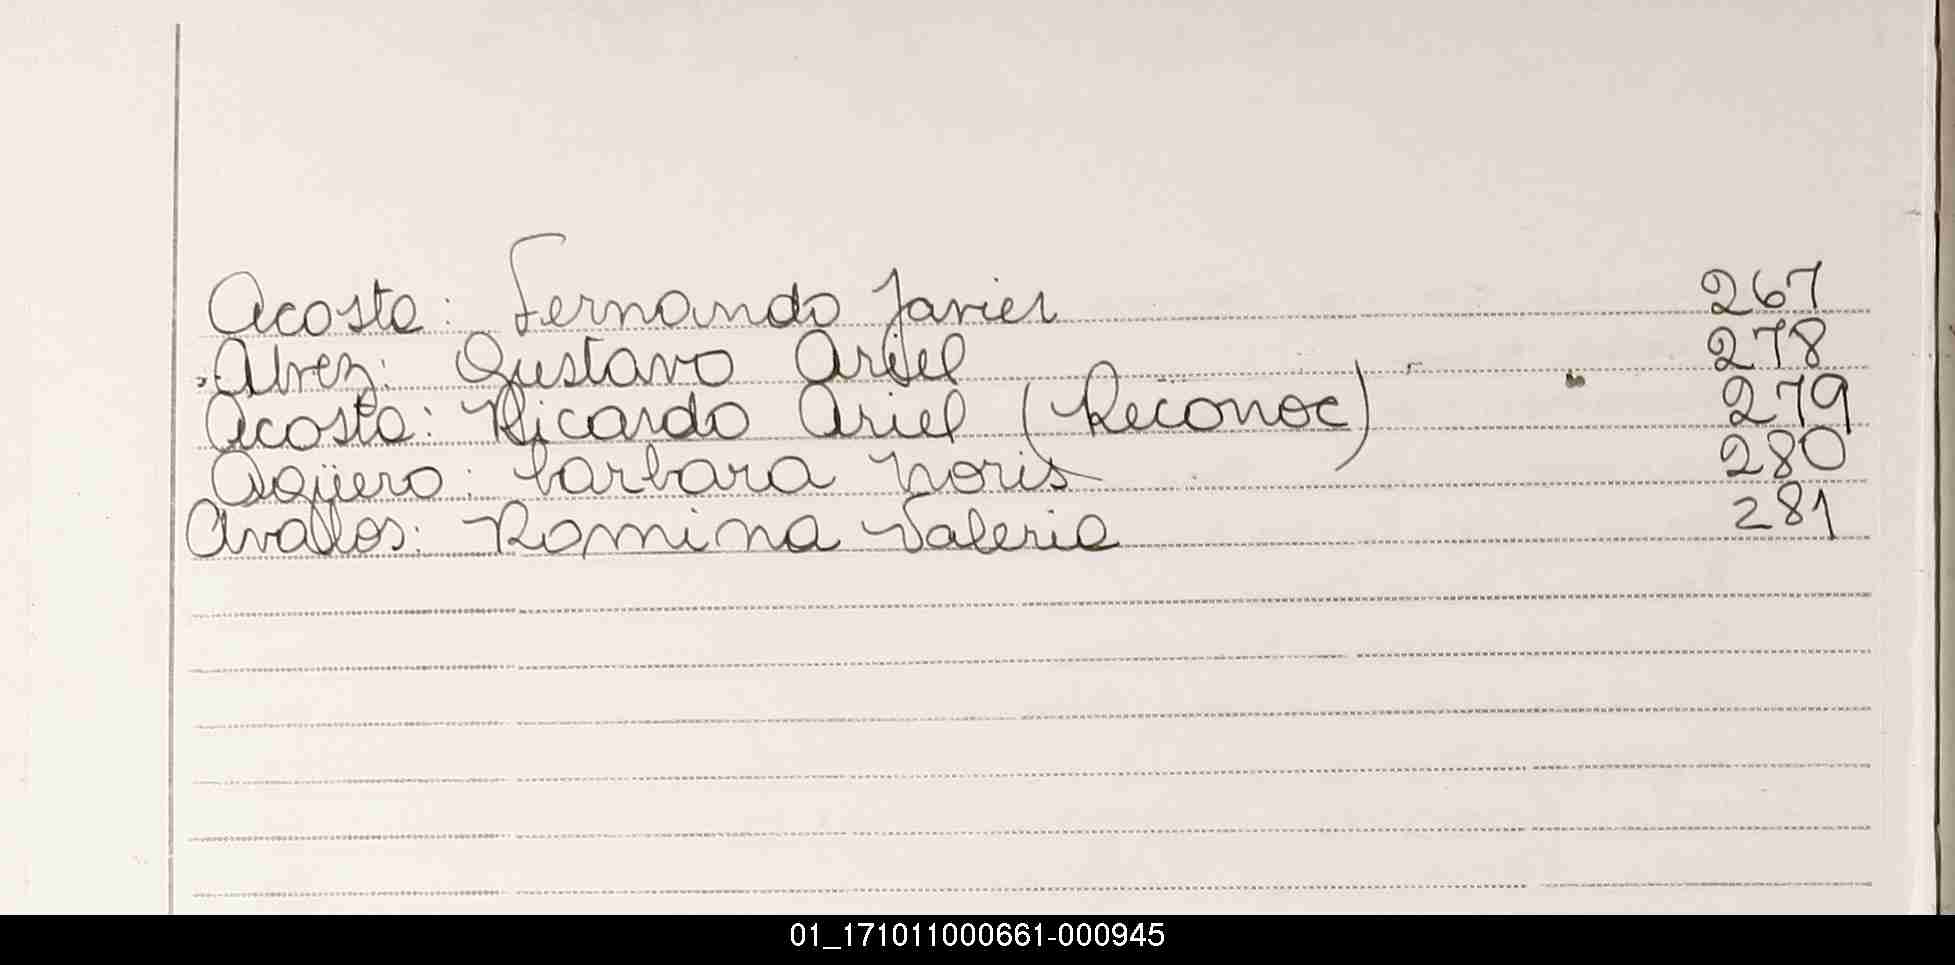 Acosta: Fernando Javier 267
Alvez: Gustavo Ariel 278
Acosta: Ricardo Ariel (Reconoc) 279
Agüero: barbara Noris 280
Avallos: Romina Valeria 281
01_171011000661-000945